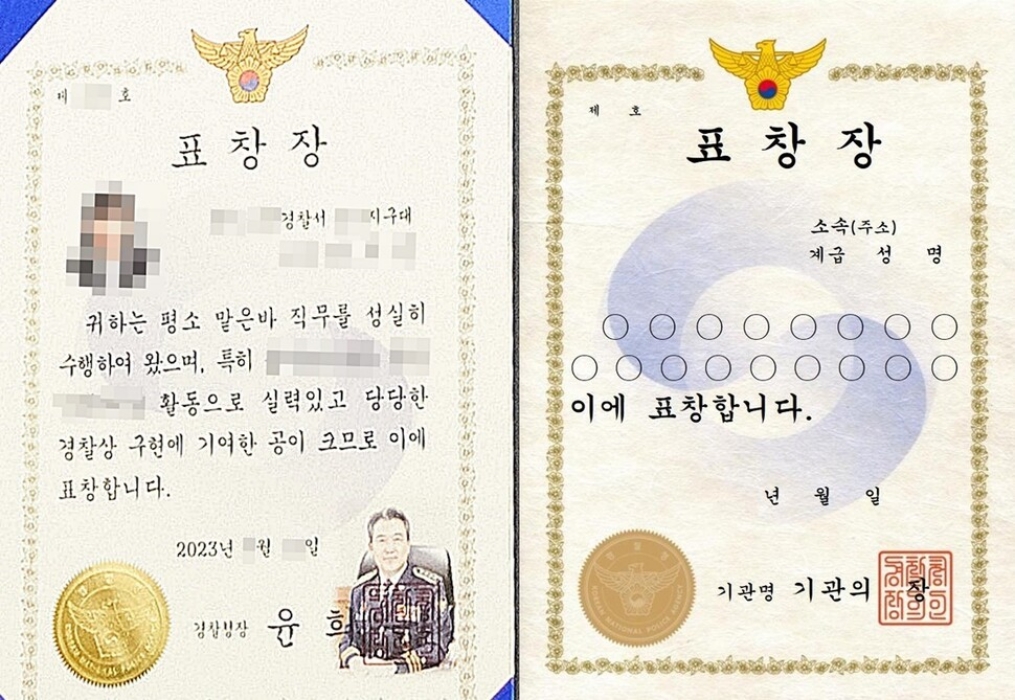 제 호
표창장
경찰서 지구대
귀하는 평소 맡은바 직무를 성실히
수행하여 왔으며, 특히
활동으로 실력있고 당당한
경찰상 구현에 기여한 공이 크므로 이에
표창합니다.
2023년 월 일
경찰청장 윤 희
제 호
표창장
소속(주소)
계급 성 명
○○○○○○○○
○○○○○○○○○
이에 표창합니다.
년 월 일
기관명 기관의 장